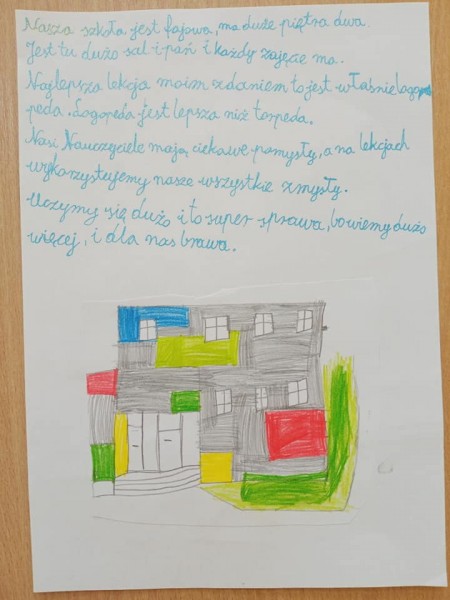 Nasza szkoła jest fajowa, ma duże piętra dwa.
Jest tu dużo sal i pań i każdy zajęcie ma.
Najlepsza lekcja moim zdaniem to jest właśnie logope
peda. Logopeda jest lepsza niż torpeda.
Nasi Nauczyciele mają ciekawe pomysły, a na lekcjach
wykorzystujemy nasze wszystkie zmysły.
Uczymy się dużo i to super sprawa, bo wiemy dużo
więcej, i dla nas brawa.